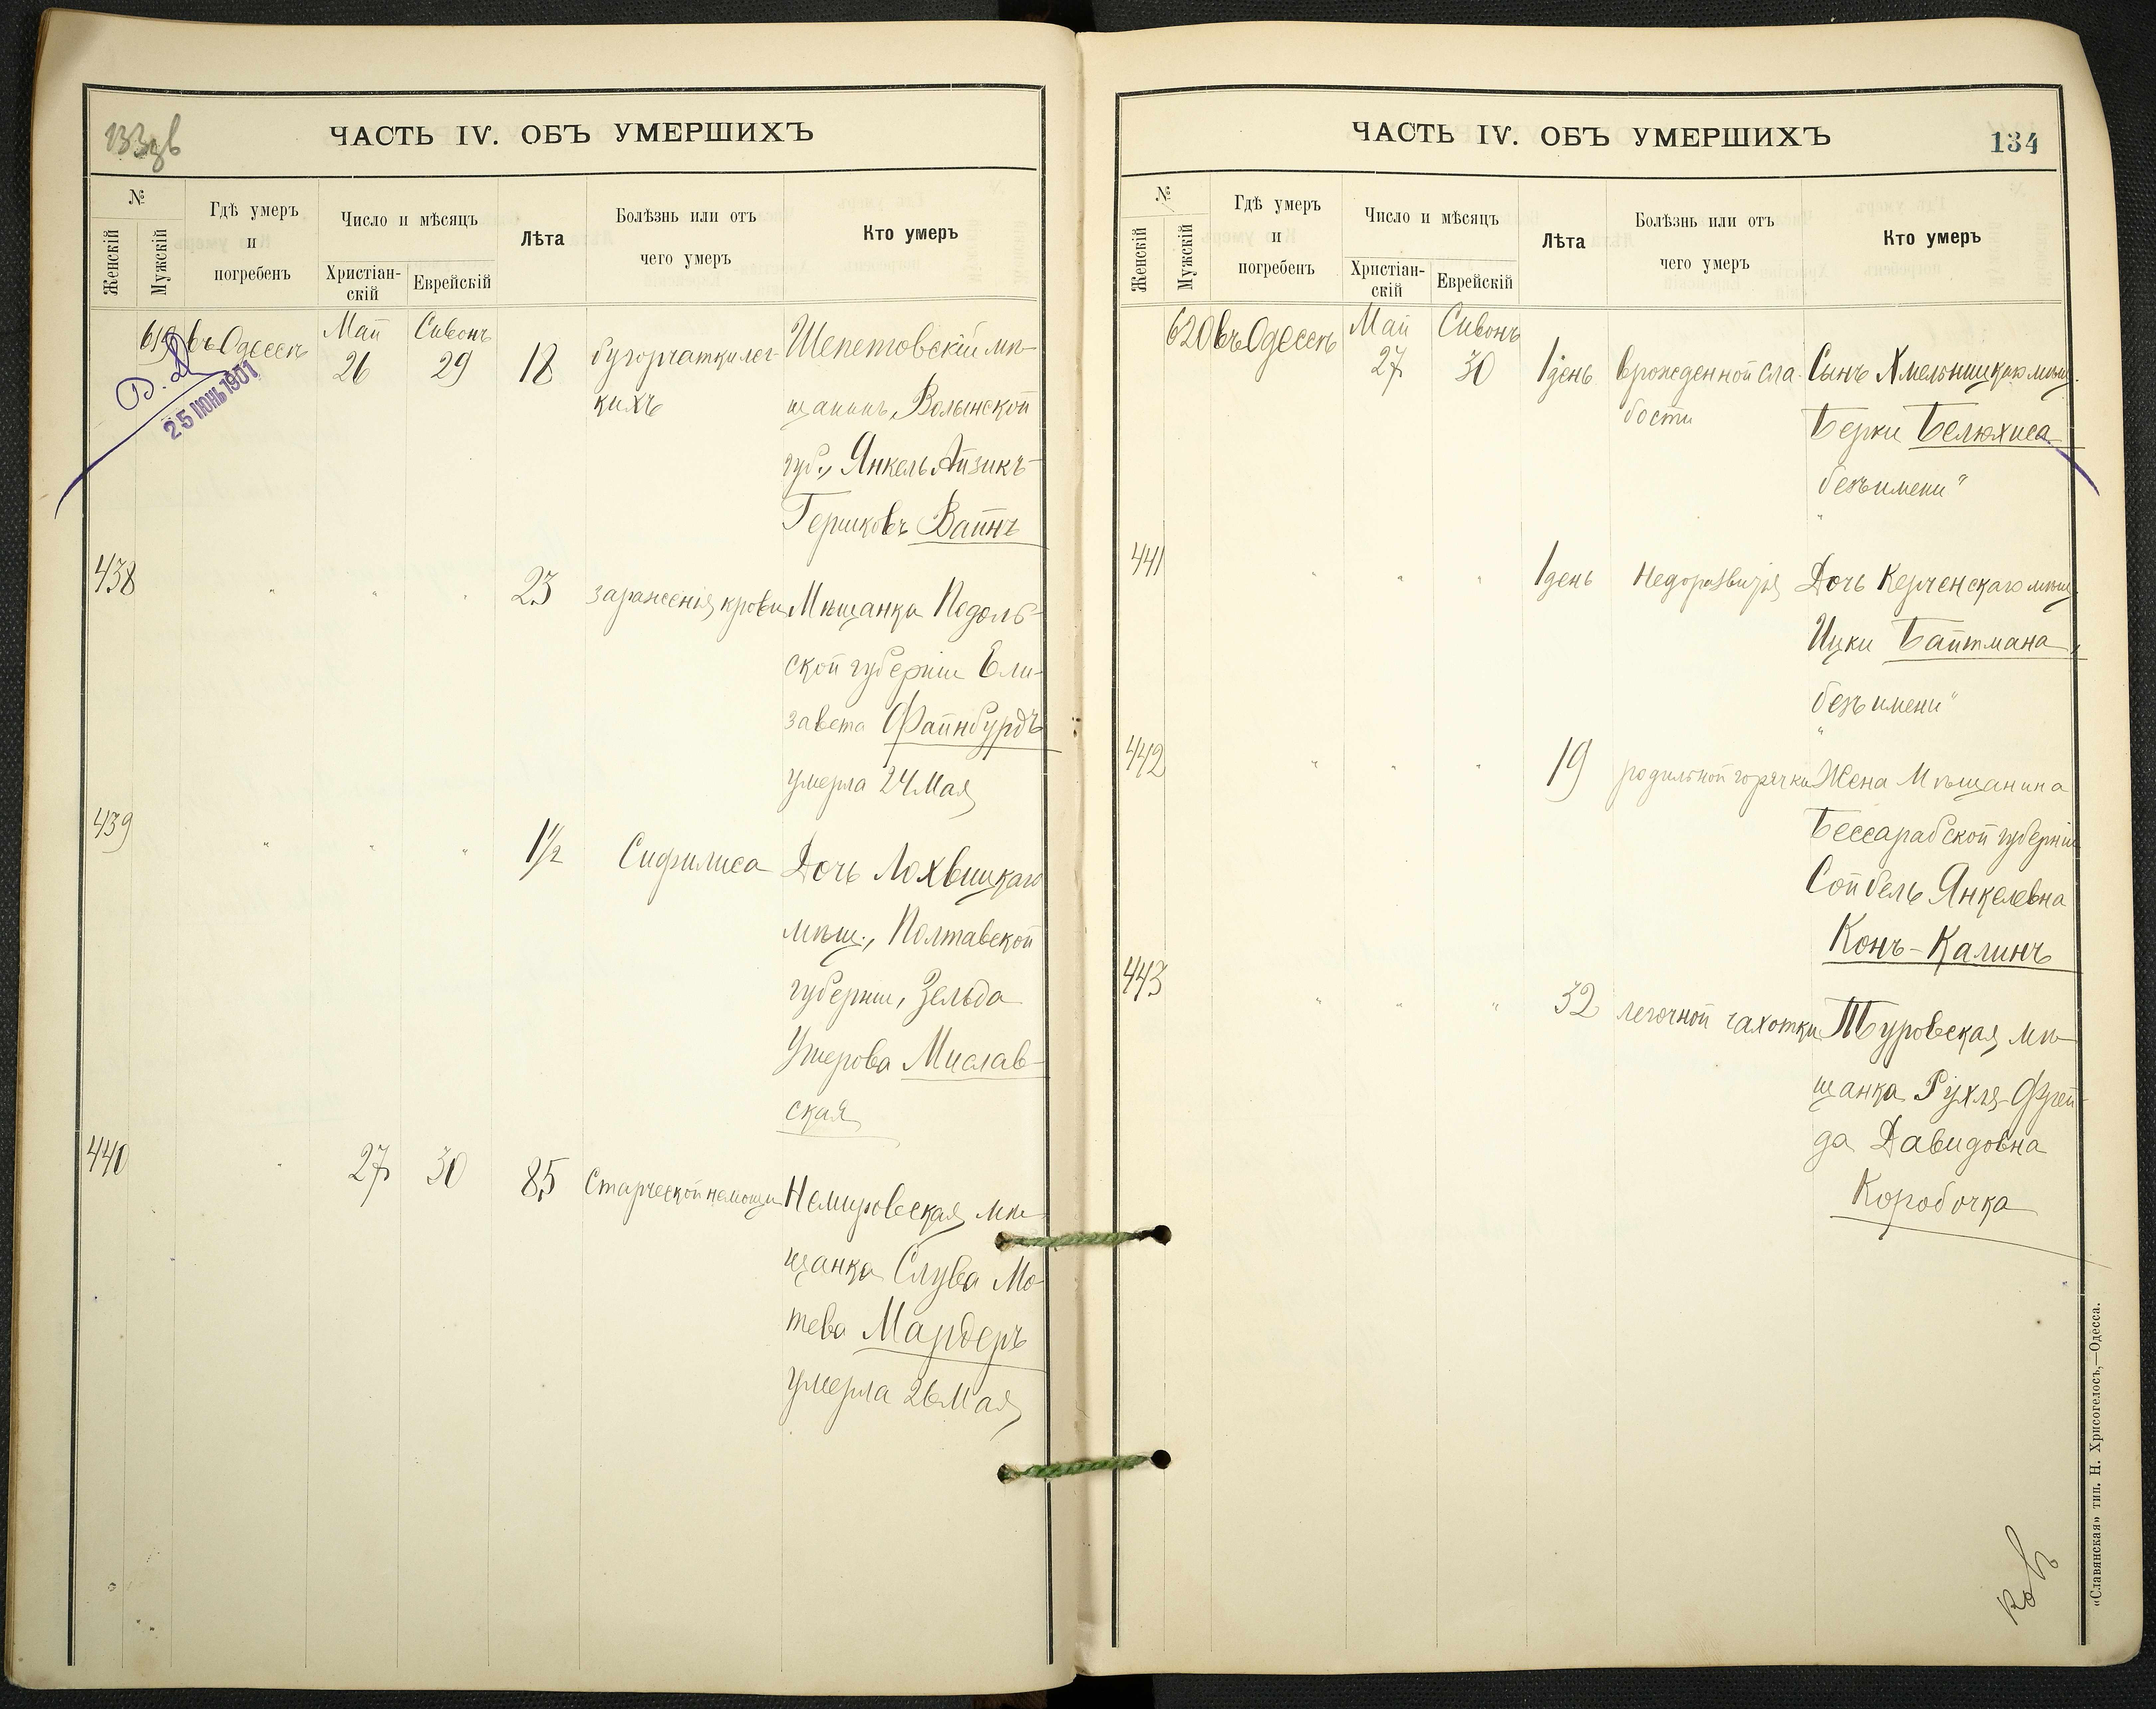 133об
ЧАСТЬ IV. ОБЪ УМЕРШИХЪ
№
Женскій
Мужскій
Гдѣ умеръ
и
погребенъ
Число и мѣсяцъ
Христіан-
скій
Еврейскій
Лѣта
Болѣзнь или отъ
чего умеръ
Кто умеръ
619 въ Одессѣ Май 26 Сивонъ 29 18
бугорчатки лег-
кихъ
Шепетовскій мѣ-
щанинъ, Волынской
губ., Янкель Айзикъ
Гершковъ Вайнъ
25 ІЮНЬ 1901
438 " " " 23 зараженія крови
Мѣщанка Подоль-
ской губерніи Ели-
завета Файнбурдъ
умерла 24 Мая
439 " " " 1½ Сифилиса
Дочь Лохвицкаго
мѣщ., Полтавской
губерніи, Зельда
Ушерова Мислав-
ская
440 " 27 30 85 Старческой немощи
Немировская мѣ-
щанка Слува Мо-
тева Мардеръ
умерла 26 Мая
ЧАСТЬ IV. ОБЪ УМЕРШИХЪ
134
№
Женскій
Мужскій
Гдѣ умеръ
и
погребенъ
Число и мѣсяцъ
Христіан-
скій
Еврейскій
Лѣта
Болѣзнь или отъ
чего умеръ
Кто умеръ
620 въ Одессѣ Май 27 Сивонъ 30 1 день
врожденной сла-
бости
Сынъ Хмельницкаго мѣщ.
Берки Белюхиса
"безъ имени"
441 " " " 1 день Недоразвитія
Дочь Керченскаго мѣщ.
Ицки Байтмана,
"безъ имени"
442 " " " 19 родильной горячки
Жена Мѣщанина
Бессарабской губерніи
Сойбель Янкелевна
Конъ-Калинъ
443 " " " 32 легочной чахотки
Туровская мѣ-
щанка Рухля-Фрей-
да Давидовна
Коробочка
«Славянская» тип. Н. Хрисогелосъ,—Одесса.